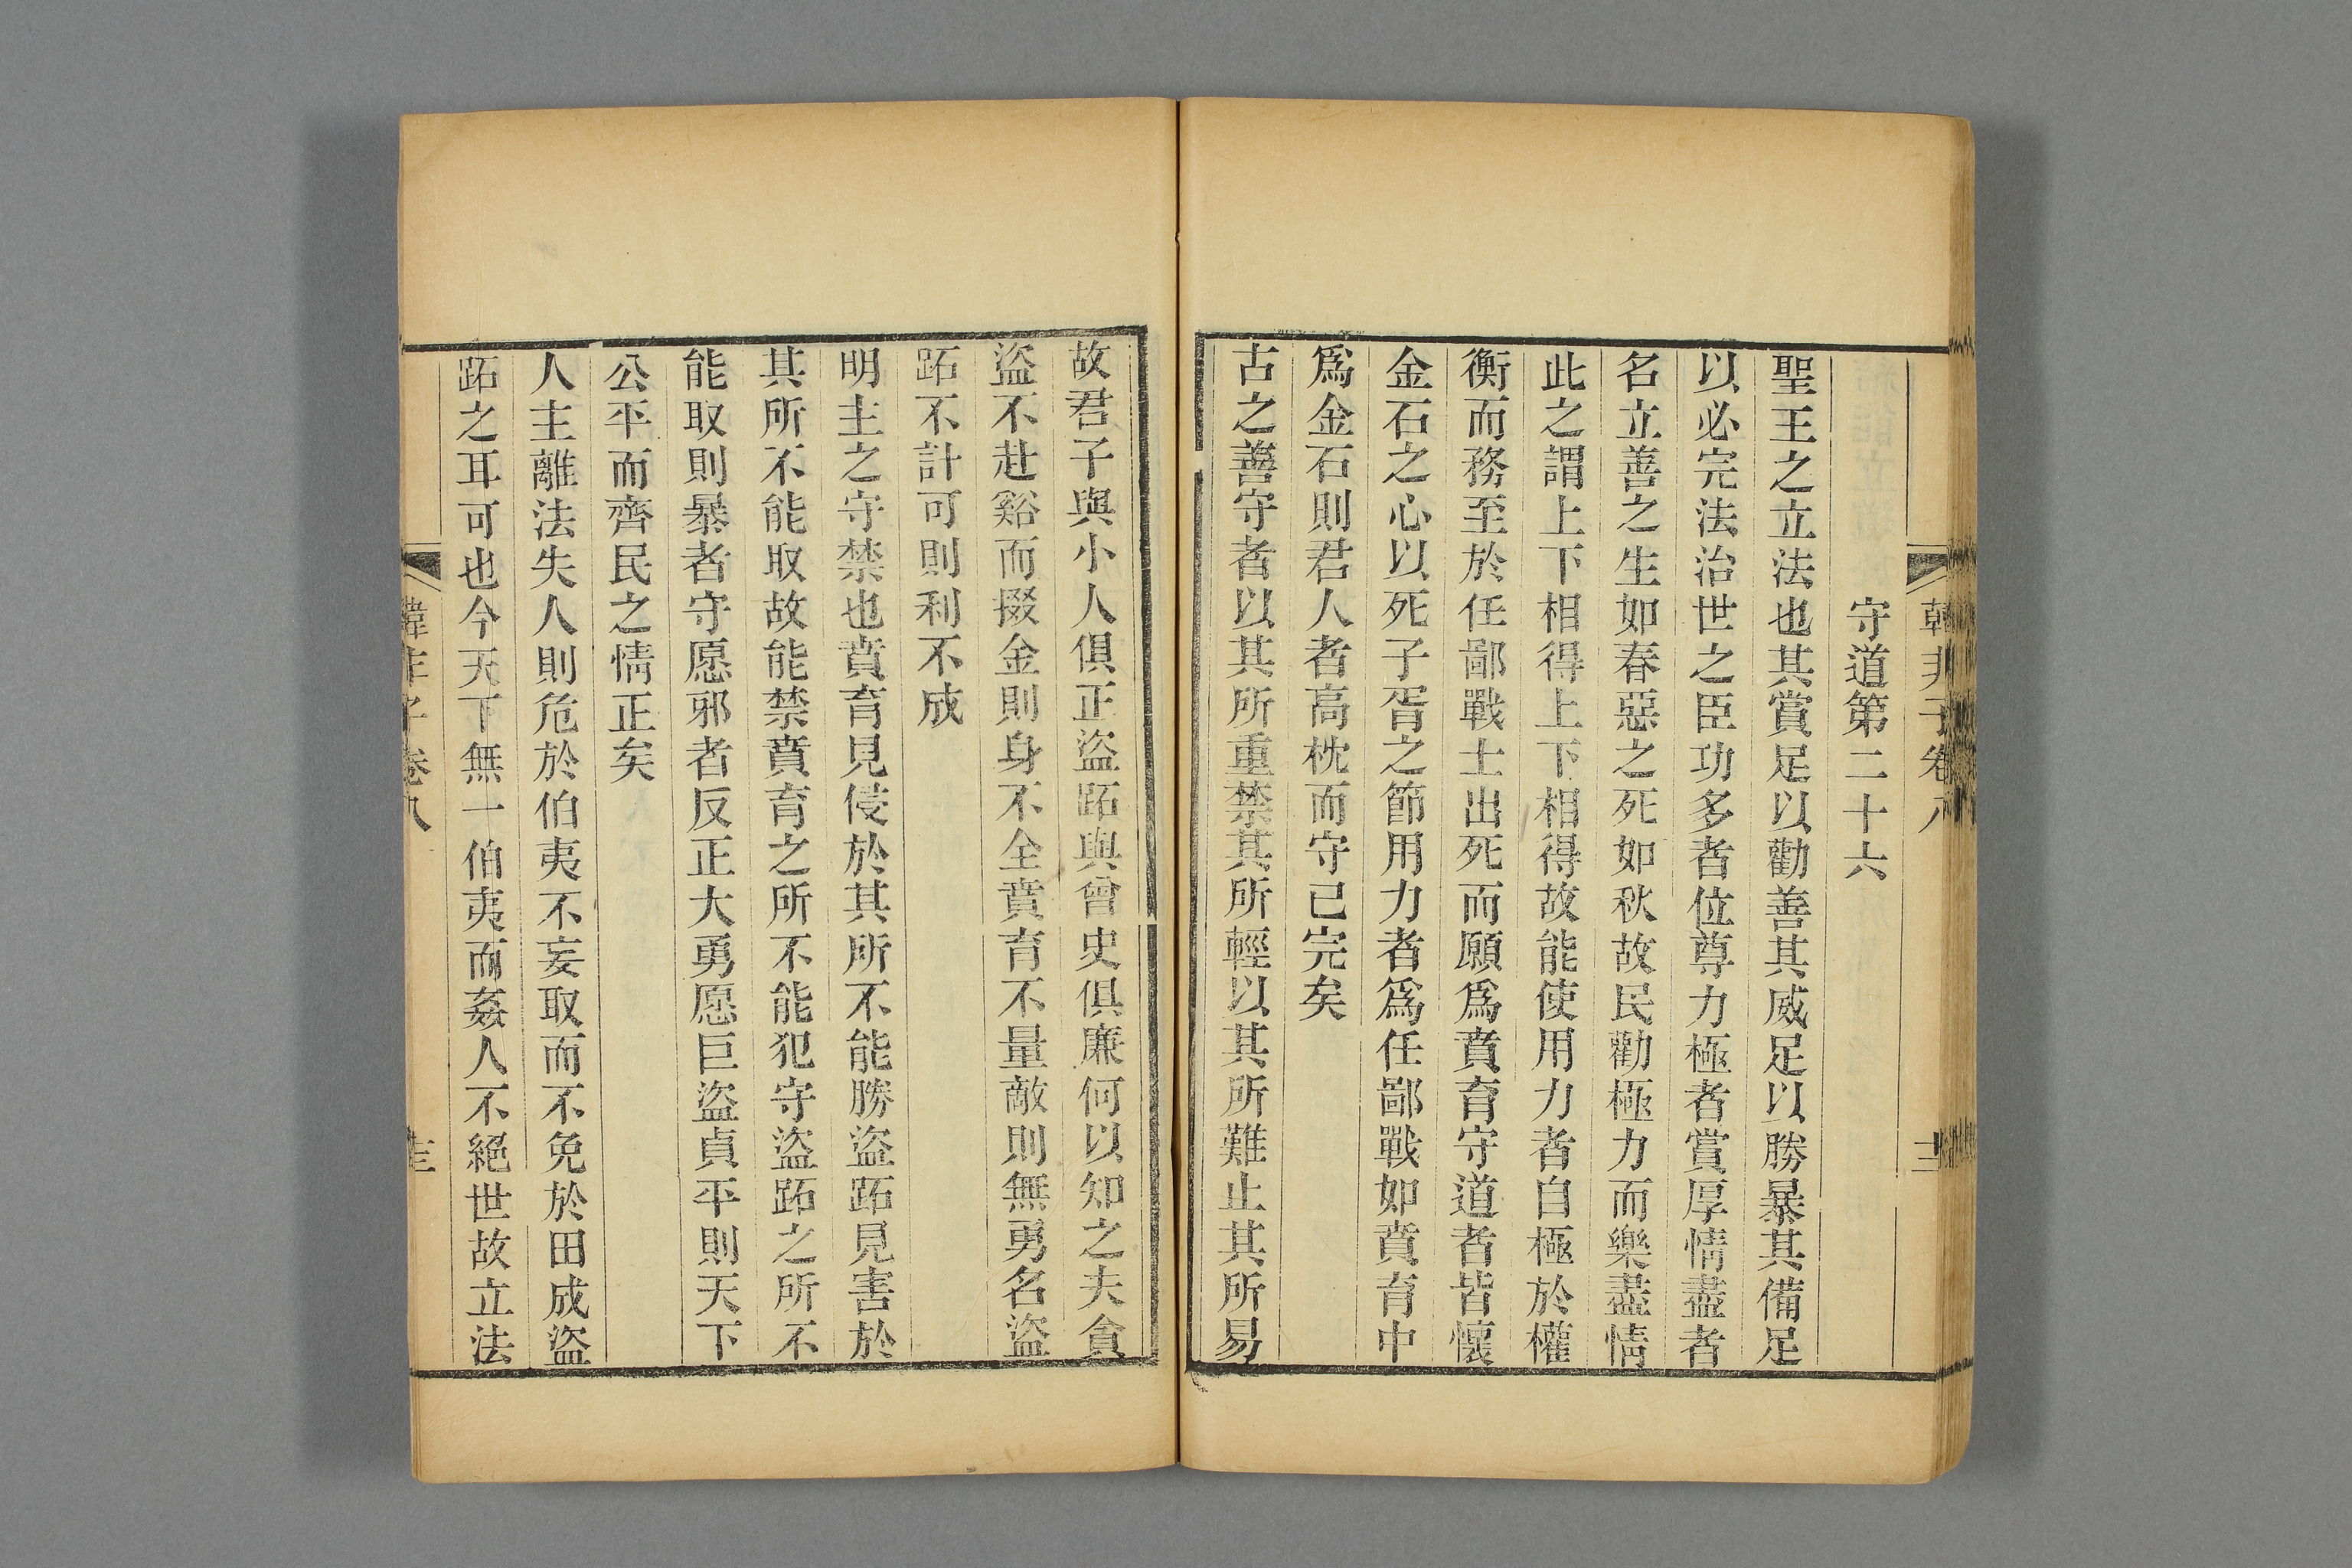 韓非子卷八
守道第二十六
聖王之立法也其賞足以勸善其威足以勝暴其備足
以必完法治世之臣功多者位尊力極者賞厚情盡者
名立善之生如春惡之死如秋故民勸極力而樂盡情
此之謂上下相得上下相得故能使用力者自極於權
衡而務至於任鄙戰士出死而願爲賁育守道者皆懷
金石之心以死子胥之節用力者爲任鄙戰如賁育中
爲金石則君人者高枕而守已完矣
古之善守者以其所重禁其所輕以其所難止其所易
故君子與小人俱正盜跖與曾史俱廉何以知之夫貪
盜不赴谿而掇金則身不全賁育不量敵則無勇名盜
跖不計可則利不成
明主之守禁也賁育見侵於其所不能勝盜跖見害於
其所不能取故能禁賁育之所不能犯守盜跖之所不
能取則暴者守愿邪者反正大勇愿巨盜貞平則天下
公平而齊民之情正矣
人主離法失人則危於伯夷不妄取而不免於田成盜
跖之耳可也今天下無一伯夷而姦人不絕世故立法
韓非子卷八